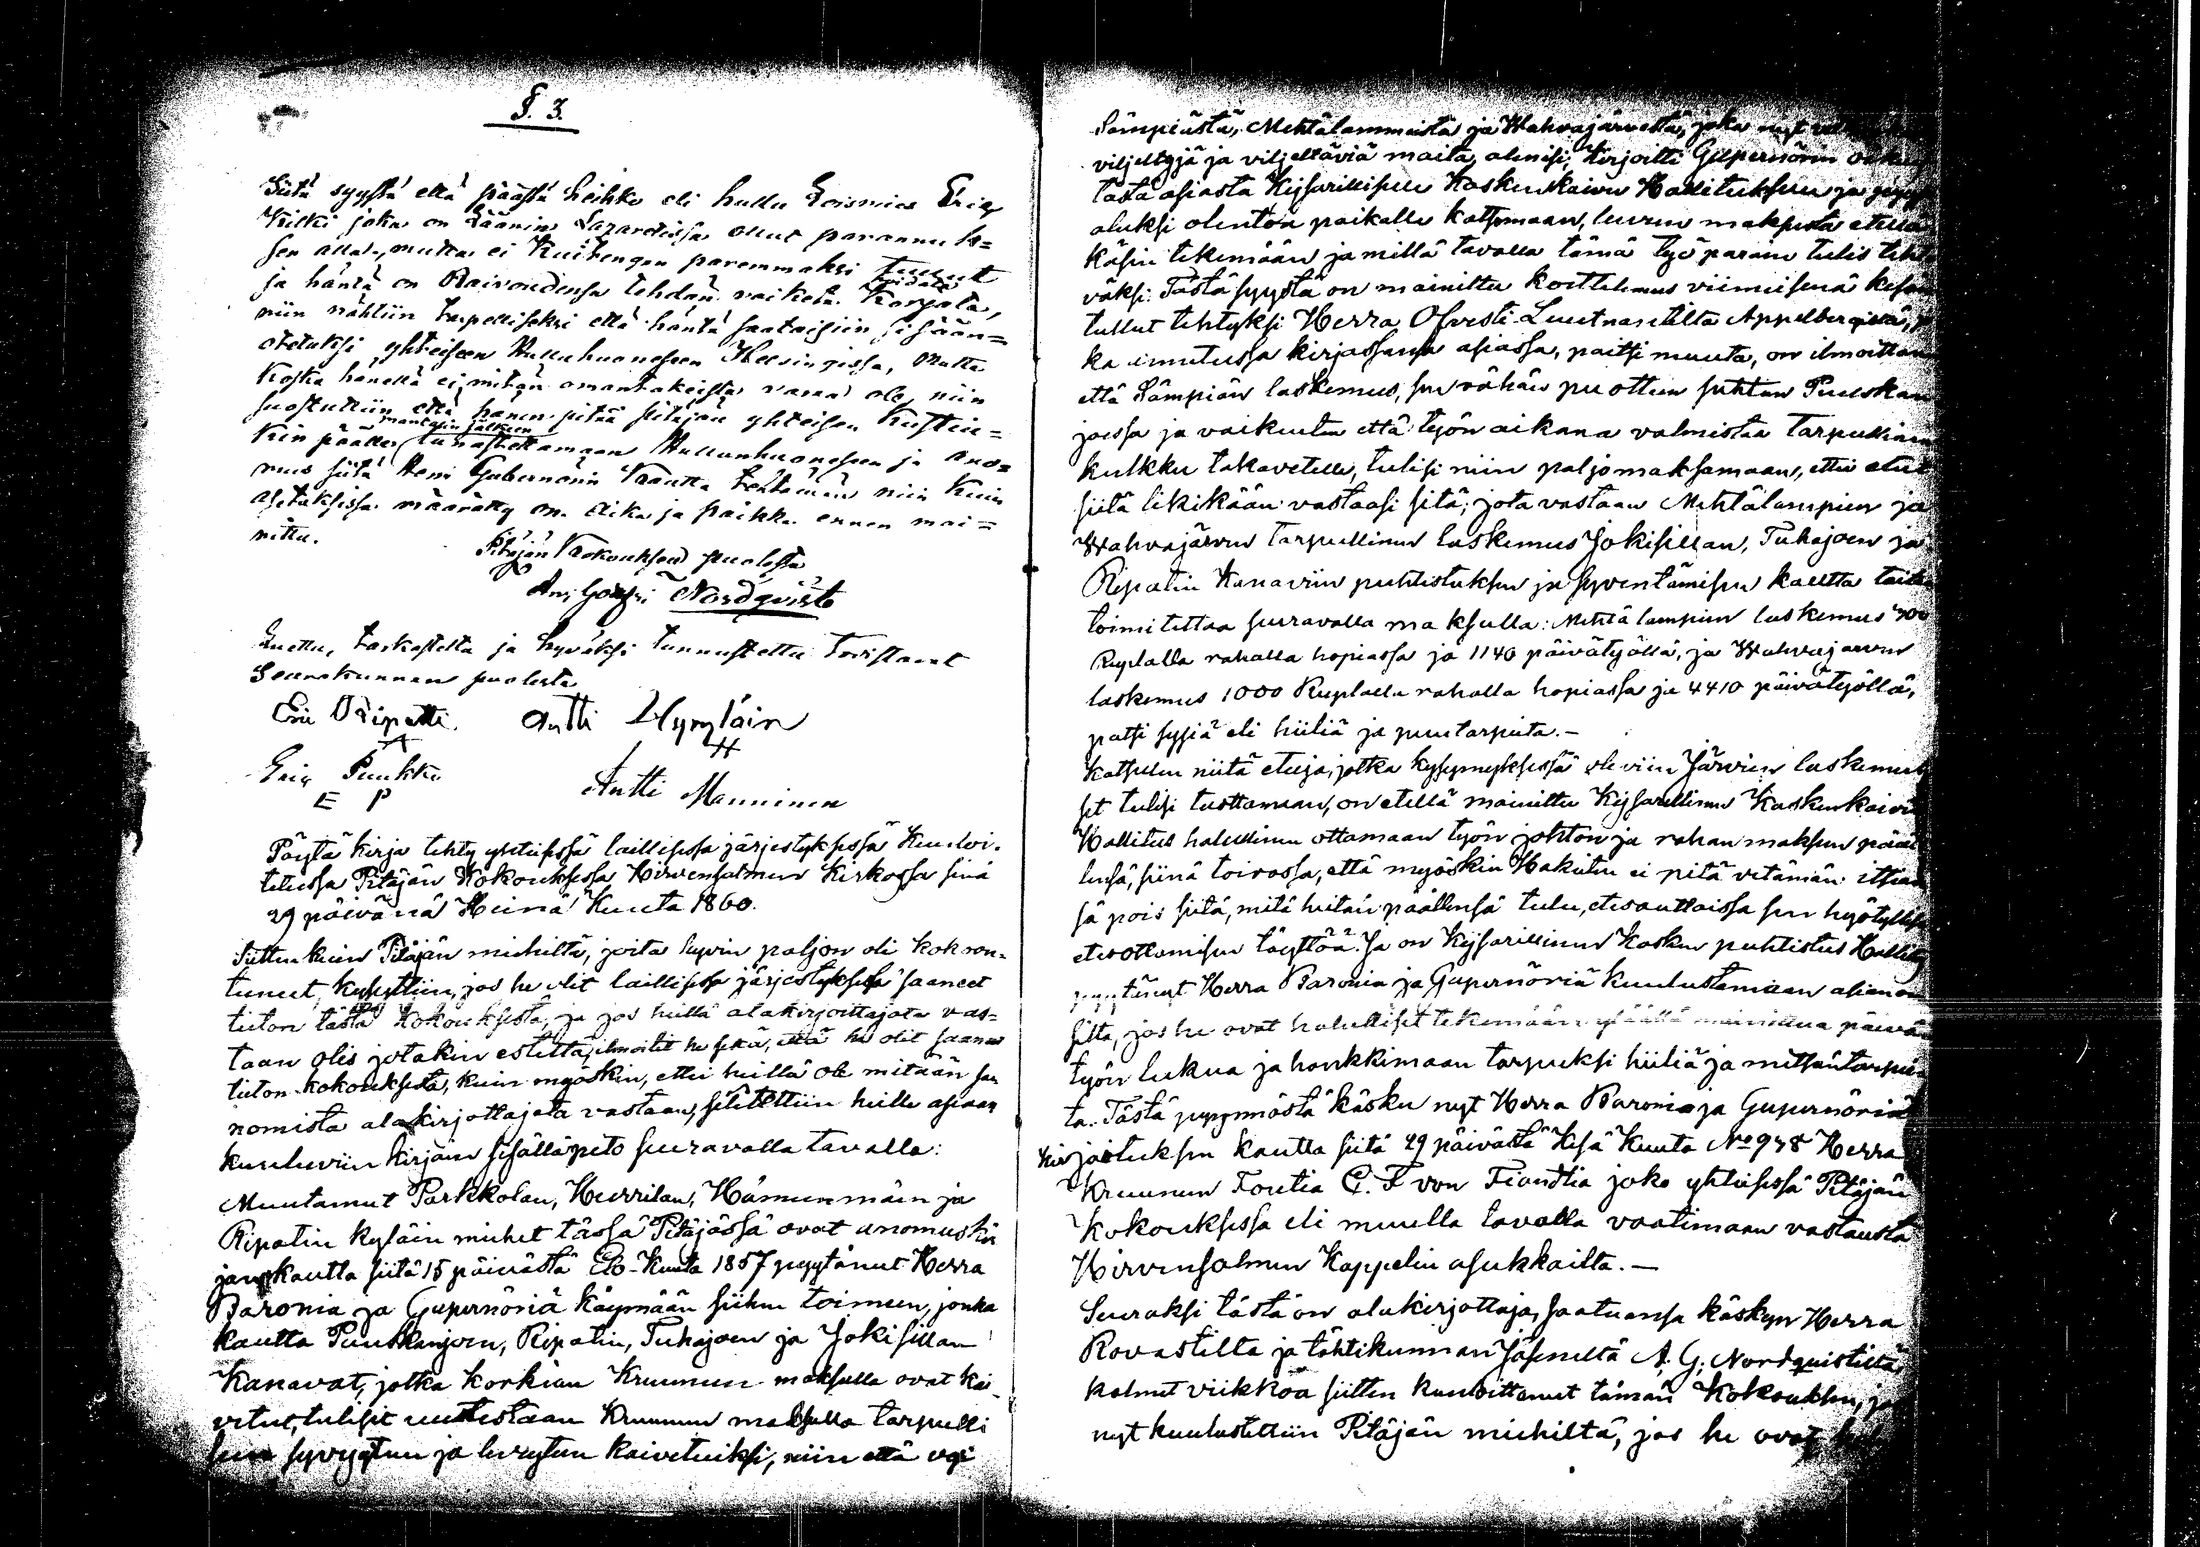 §. 3.
Siitä syystä että päästä heikko eli hullu Loismies Eric
Kilki joka on Läänin Lazaretissa ollut parannukse=
sen alla, mutta ei kuitengan paremmaksi tullut
ja häntä on Raivoudensa tehdän vaiketa korjata,
niin nähtiin tarpelliseksi että häntä saataisiin sisään=
otetuksi yhteiseen Hulluhuoneseen Helsingissa, Mutta
koska hänellä ei mitän omantakeista varaa ole, niin
suostuttiin että hänen pitää pitäjän yhteisen kustin=
kin päälle tunastettamaan Hullunhuoneseen ja ano=
mus siitä Herra Gubernörin kautta tehtämän niin kuin
Asetuksissa määrätty on. Aika ja paikka ennen mai=
nittu.
Pitäjän Kokouksen puolesta
And. Gorgri Nordqvist
Luettu, tarkastettu ja hyväksi tunnustettu todistavat
Seurakunnan puolesta
Eric Ripatti Antti Hyyryläin
Eric Puukko
E P
Antti Manninen
Pöytä kirja tehty yhteisessä laillisessa järjestyksessä kuuloi-
tetussa Pitäjän Kokouksessa Hirvensalmen Kirkossa sinä
29 päivänä Heinä Kuuta 1860.
Sitten kuin Pitäjän miehiltä, joita hyvin paljon oli kokoon-
tuneet, kysyttiin, jos he olit laillisessa järjestyksessä saaneet
tieton tästä Kokouksesta, ja jos heillä alakirjoittajata vas=
taan olis jotakin estettä, ilmoitit he sekä, että he olit saaneet
tieton kokouksesta, kuin myöskin, ettei heillä ole mitään sa
nomista alakirjottajata vastaan, selitettiin heille asiaan
kuuluviin kirjain sisälläpito seuravalla tavalla:
Muutamat Parkkolan, Hurrilan, Hämeenmäen ja
Ripatin kyläin miehet tässä Pitäjässä ovat anomuskir
jan kautta siitä 15 päivästä Elo-Kuuta 1857 pyytänet Herra
Baronia ja Gupernöriä käymään siihen toimeen, jonka
kautta Puuskanjoen, Ripatin, Tuhajoen ja Jokisillan
Kanavat, jotka korkian Kruunun maksulla ovat kai
vetut, tulisit uudestaan Kruunun maksulla tarpelli
seen syvyyteen ja leveyteen kaivetuiksi, niin että vesi
Lämpiästä, Mehtälammista ja Wahvajärvestä, joka nyt
viljeltyjä ja viljeltäviä maita, alenisi, kirjoitti Gupernörin
tästä asiasta Kejsarillisellen Koskenkaivu Hallituksen ja
aluksi olentoa paikalla katsomaan, luvun maksusta etellä
käsin tekemään ja millä tavalla tämä työ parain tulis teh
väksi. Tästä syystä on mainittu koettelemus viimeisenä kesänä
tullut tehtyksi Herra Ofversti-Luutnantilta Appelbergiltä,
ka annetussa kirjassansa asiassa, paitsi muuta, on ilmoittanut
että Lämpiän laskemus, sen vähän puotteen suhteen Puuskan
joessa ja vaikeuten että työn aikana valmistaa tarpellinen
kulkku takavetelle, tulisi niin paljo maksamaan, ettei etut
siitä likikään vastaasi sitä; jota vastaan Mehtälampien ja
Wahvajärven tarpellinen laskemus Jokisillan, Tuhajoen ja
Ripatin Kanaviin puhtistuksen ja syventämisen kautta
toimitettaa seuravalla maksulla: Mehtälampien laskemus 400
Ruplalla rahalla hopiassa ja 1140 päivätyöllä, ja Wahvajärven
laskemus 1000 Ruplalla rahalla hopiassa ja 4410 päivätyöllä,
patsi sysiä eli hiiliä ja puutarpeita.-
Katsuen niitä etuja, jotka kysymyksessä oleviin Järvien laskemuk
set tulisi tuottamaan, on etellä mainittu Kejsarillinen Koskenkaivu
Hallitus halullinen ottamaan työn johton ja rahan maksun pääl
lensä, siinä toivossa, että myöskin Hakiat ei pitä vetämän itsian
sä pois siitä, mitä heitän päällensä tulee, etesauttaissa sen hyötyllisen
etesottamisen täyttöä. Ja on Kejsarillinen Kosken puhtistus Hallitus
pyytänyt Herra Baronia ja Gupernöriä kuulustamaan asianom
silta, jos he ovat halulliset tekemään ylläällä mainittua päivä
työn lukua ja hankkimaan tarpeksi hiiliä ja metsäntarpei
ta. Tästä pyynnöstä käsku nyt Herra Baronia ja Gupernöriä
kirjoituksen kautta siitä 29 päivästä Kesä Kuuta No 948 Herra
Kruunun Foutia C. F von Fiandtia joko yhteisessä Pitäjän
Kokouksessa eli muulla tavalla vaatimaan vastausta
Hirvensalmen Kappelin asukkailta.-
Seuraksi tästä on alakirjottaja, saatuansa käskyn Herra
Rovastilta ja tähtikunnan Jäseneltä A. G. Nordquistilta,
kolmet viikkoa sitten kuuloittanut tämän Kokouksen, ja
nyt kuulustettiin Pitäjän miehiltä, jos he ovat